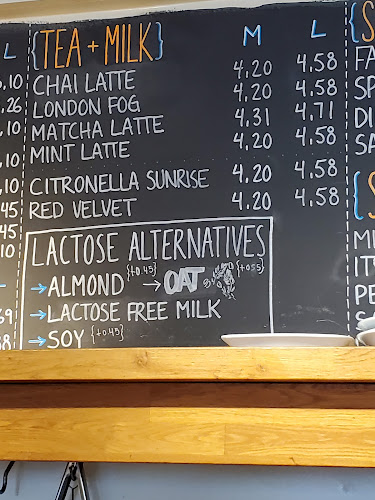 L {TEA + MILK} M L {S
.10 CHAI LATTE 4.20 4.58 FA
.26 LONDON FOG 4.20 4.58 SP
.10 MATCHA LATTE 4.31 4.71 DI
MINT LATTE 4.20 4.58 SA
.10
.10 CITRONELLA SUNRISE 4.20 4.58
.45 RED VELVET 4.20 4.58 {S
.45
.10 LACTOSE ALTERNATIVES
→ALMOND {+0.45} →OAT {+0.55}
→LACTOSE FREE MILK
→SOY {+0.45}
IT
PE